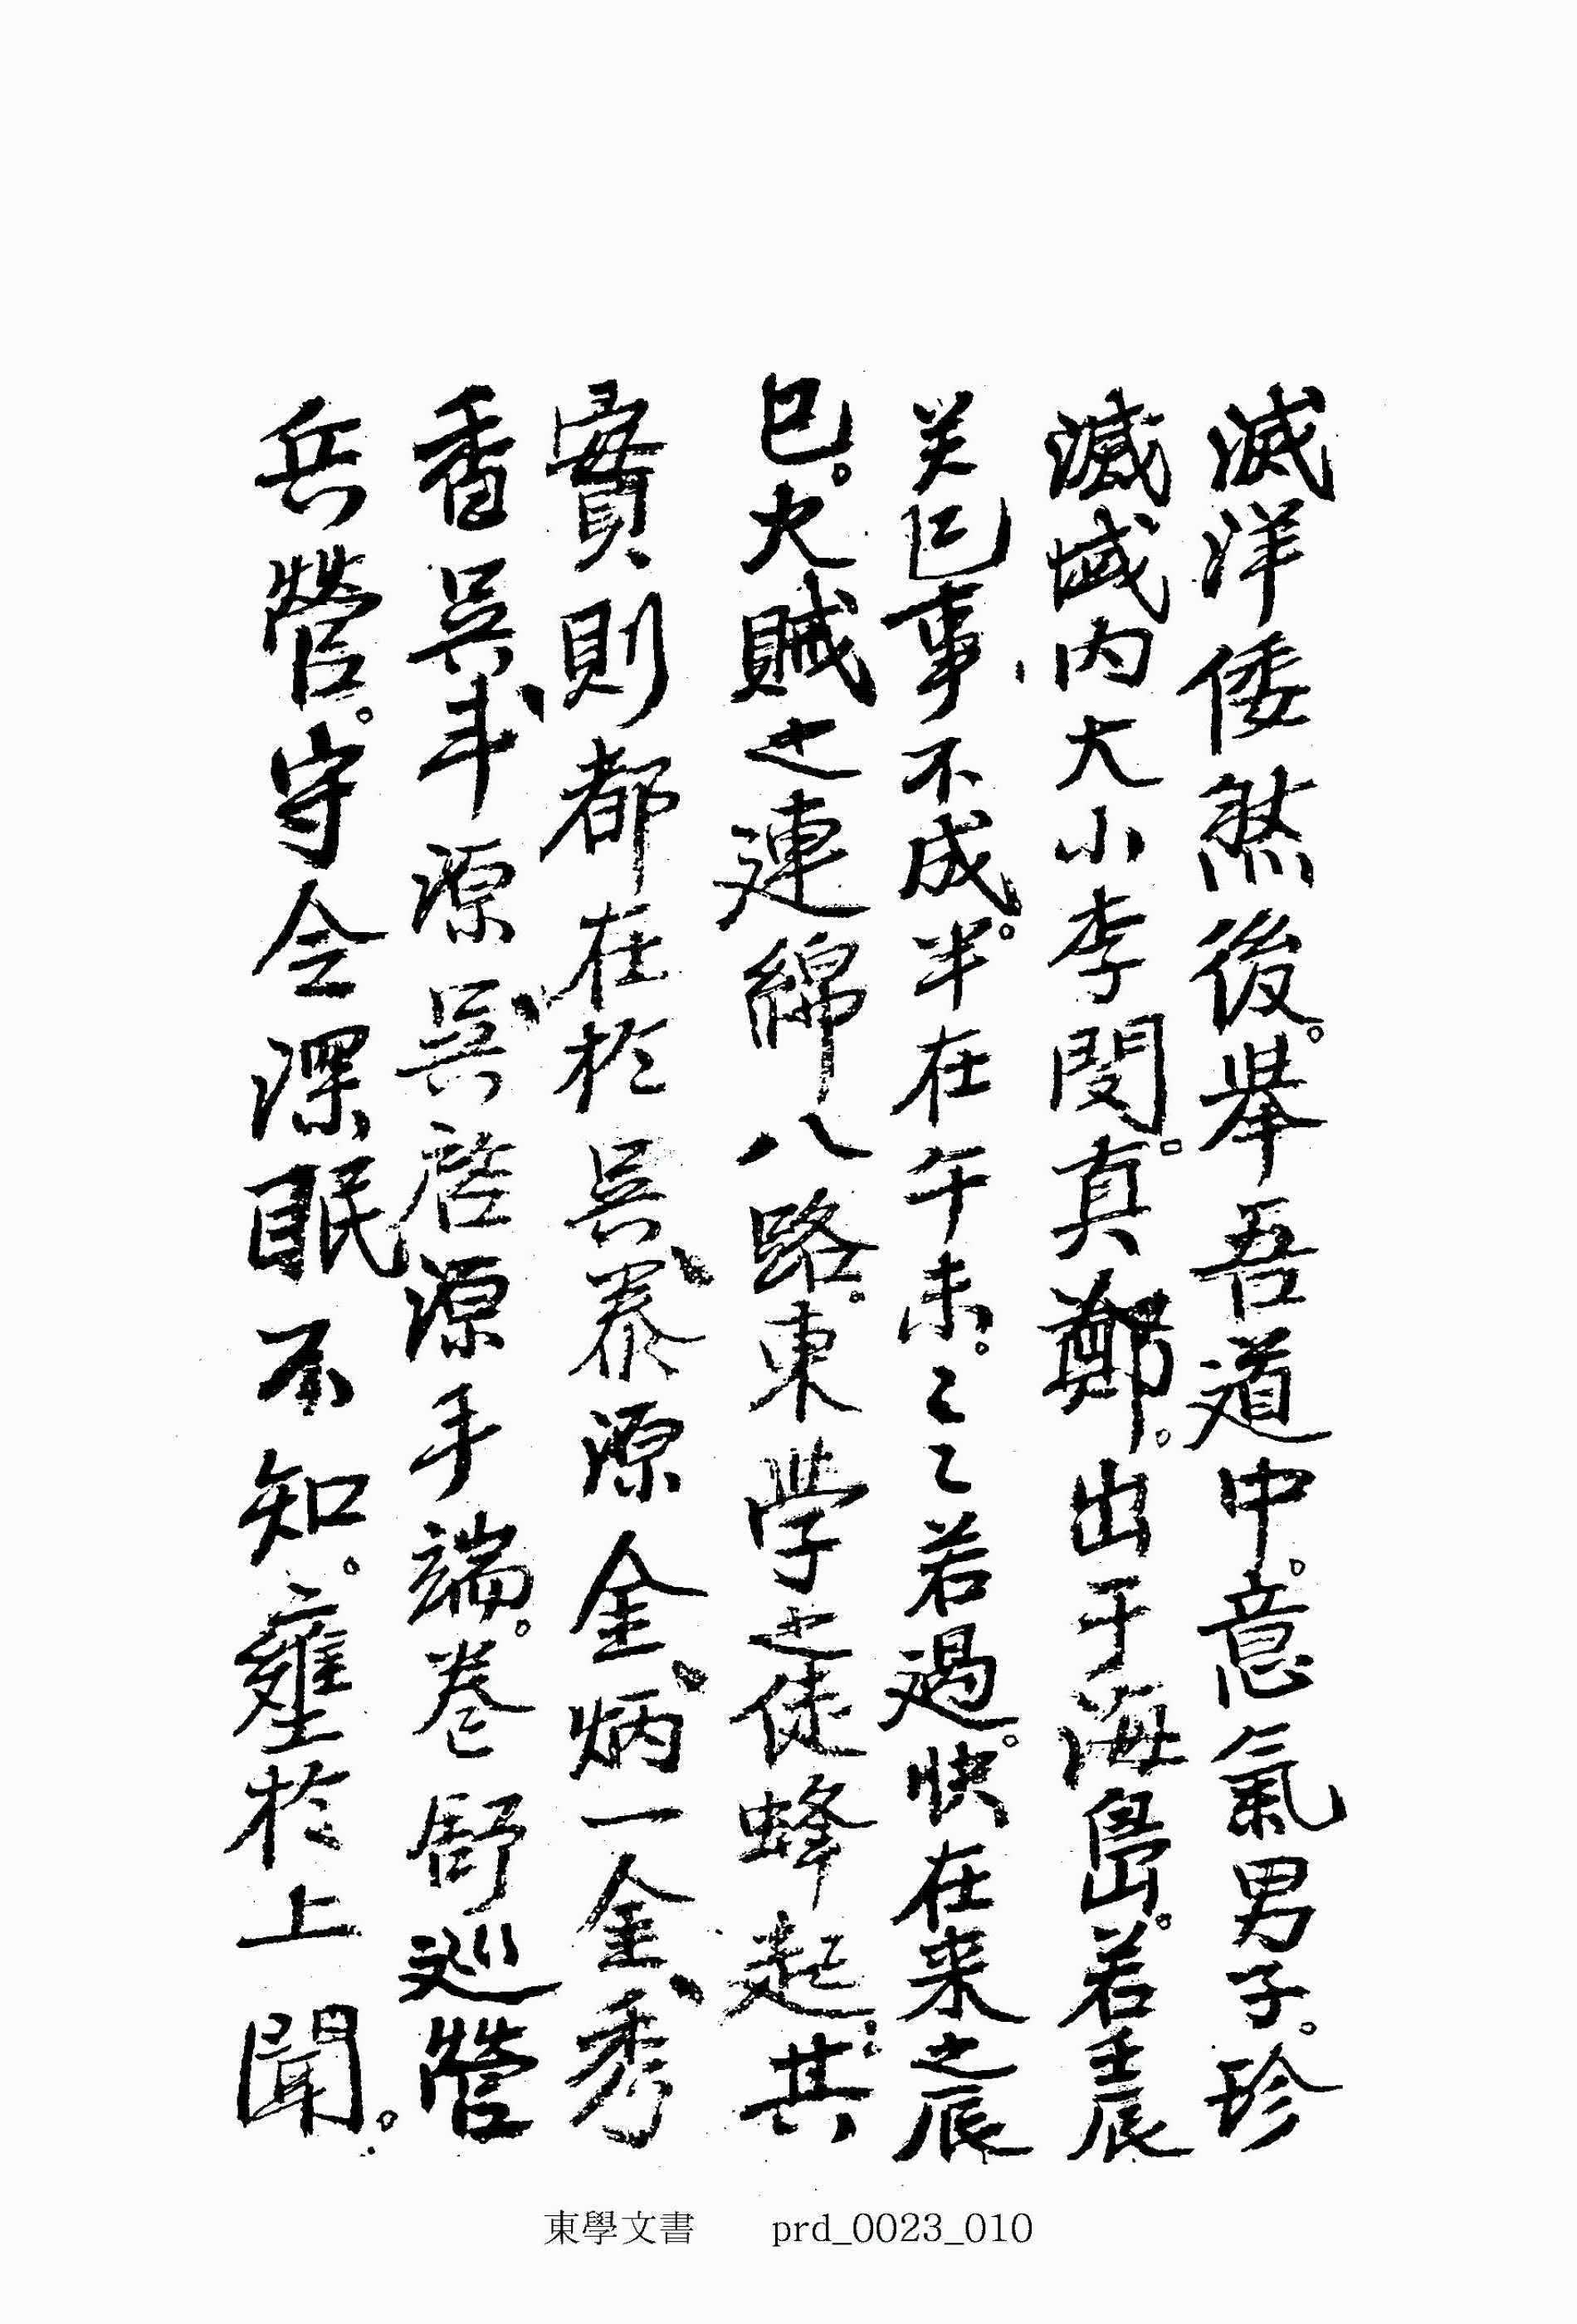 滅洋倭煞後。舉吾道中。意氣男子。珍
滅域内大小李閔。真鄭。出于海島。若壬辰
癸巳事不成。半在午未。〻〻若過。快在来之辰
巳。大賊之連綿八路。東学之徒蜂起。其
實則都在於吳泰源金炳一金秀
香吳斗源吳啓源手端。卷舒巡營
兵營。守令深眠不知。壅於上聞。
東學文書 prd_0023_010